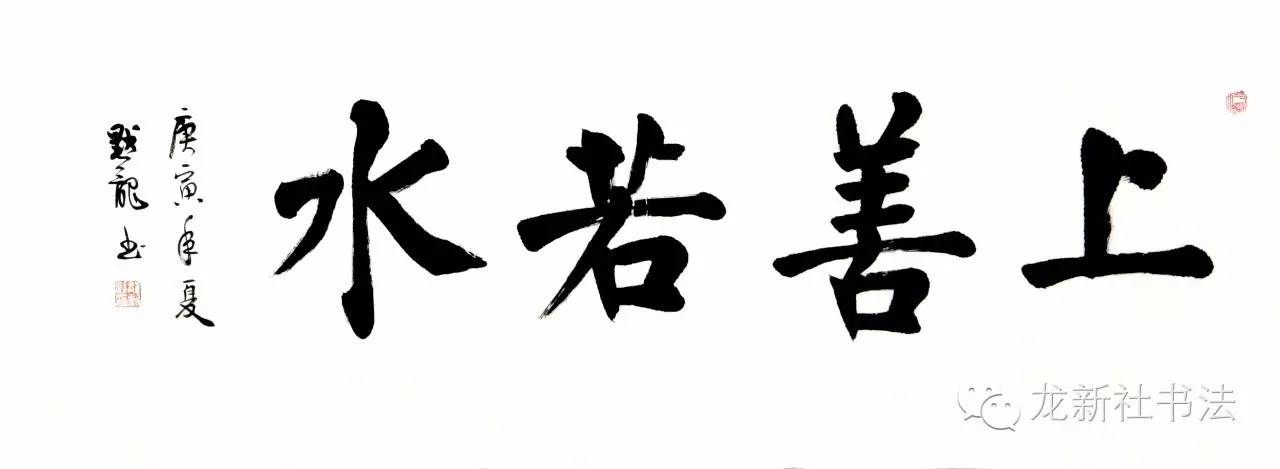 上善若水
庚寅年夏
默龍书
龙新社书法